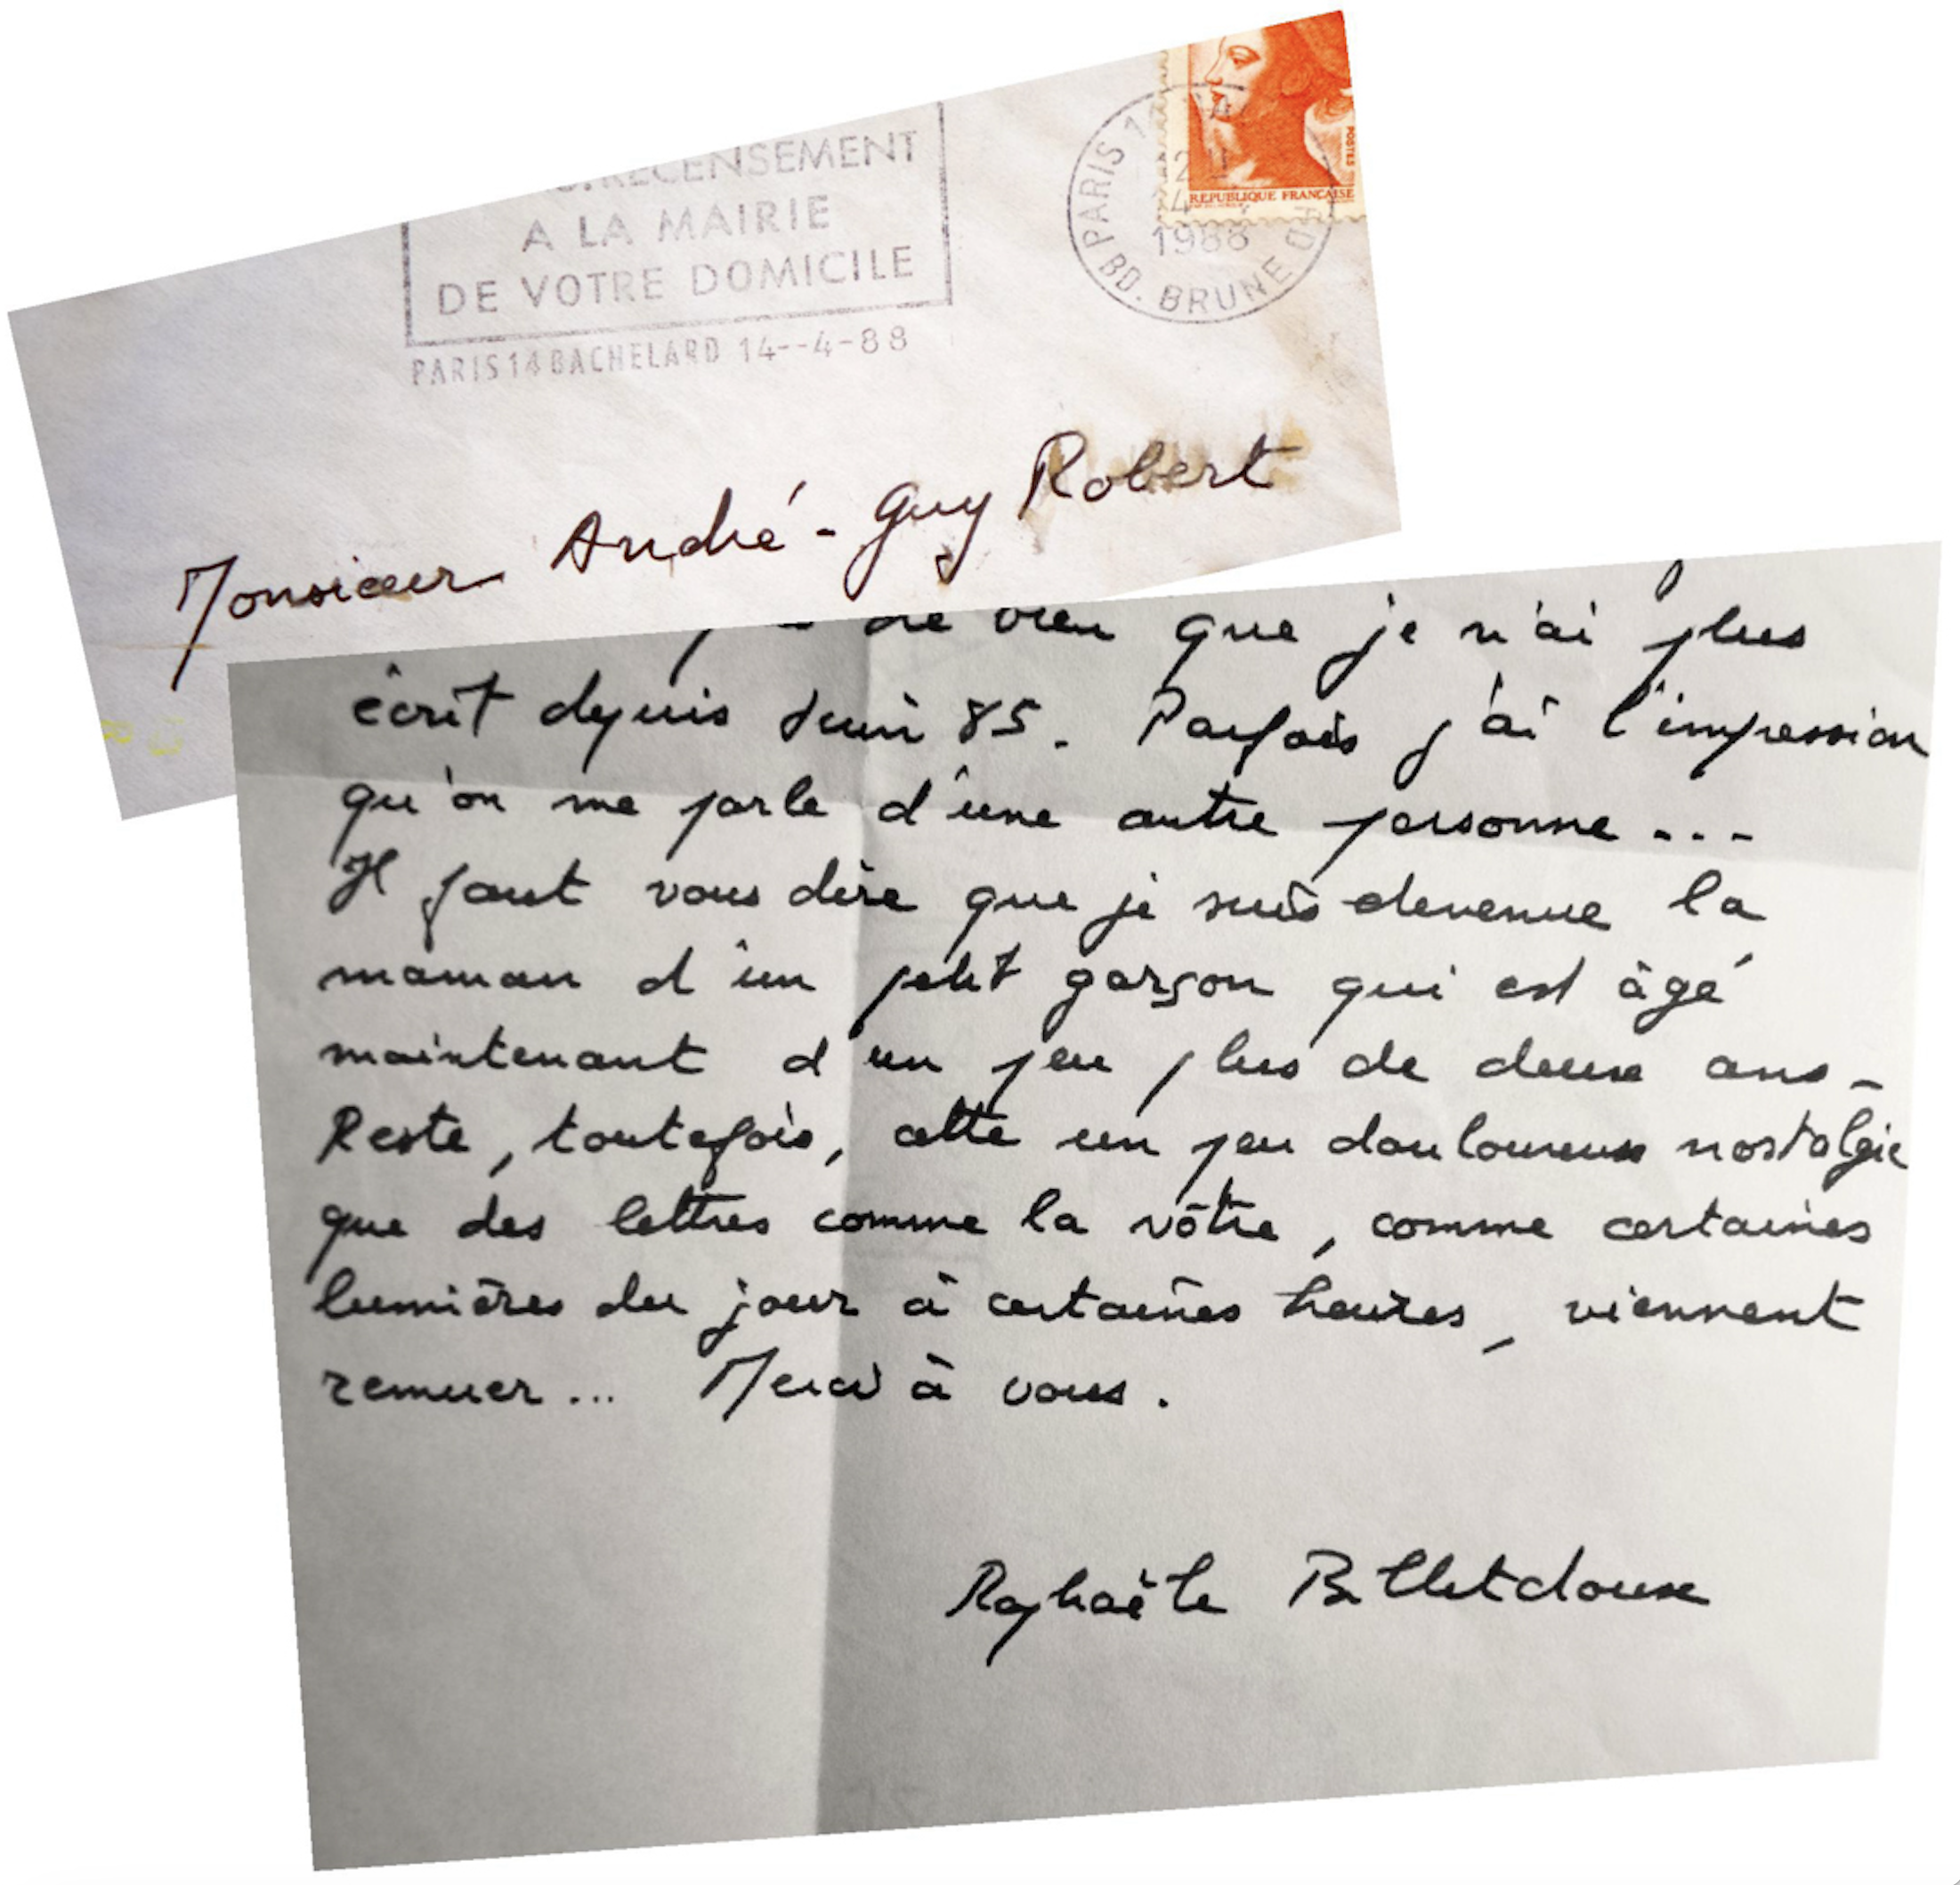 RECENSEMENT
A LA MAIRIE
DE VOTRE DOMICILE
PARIS 14 BACHELARD 14--4-88
PARIS 1
14
4
1988
BD. BRUNE
POSTES
REPUBLIQUE FRANÇAISE
Monsieur André-Guy Robert
que je n'ai plus
écrit depuis Juin 85. Parfois j'ai l'impression
qu'on me parle d'une autre personne...
Il faut vous dire que je suis devenue la
maman d'un petit garçon qui est âgé
maintenant d'un peu plus de deux ans.
Reste, toutefois, cette un peu douloureuse nostalgie
que des lettres comme la vôtre, comme certaines
lumières du jour à certaines heures, viennent
remuer... Merci à vous.
Raphaële Billetdoux